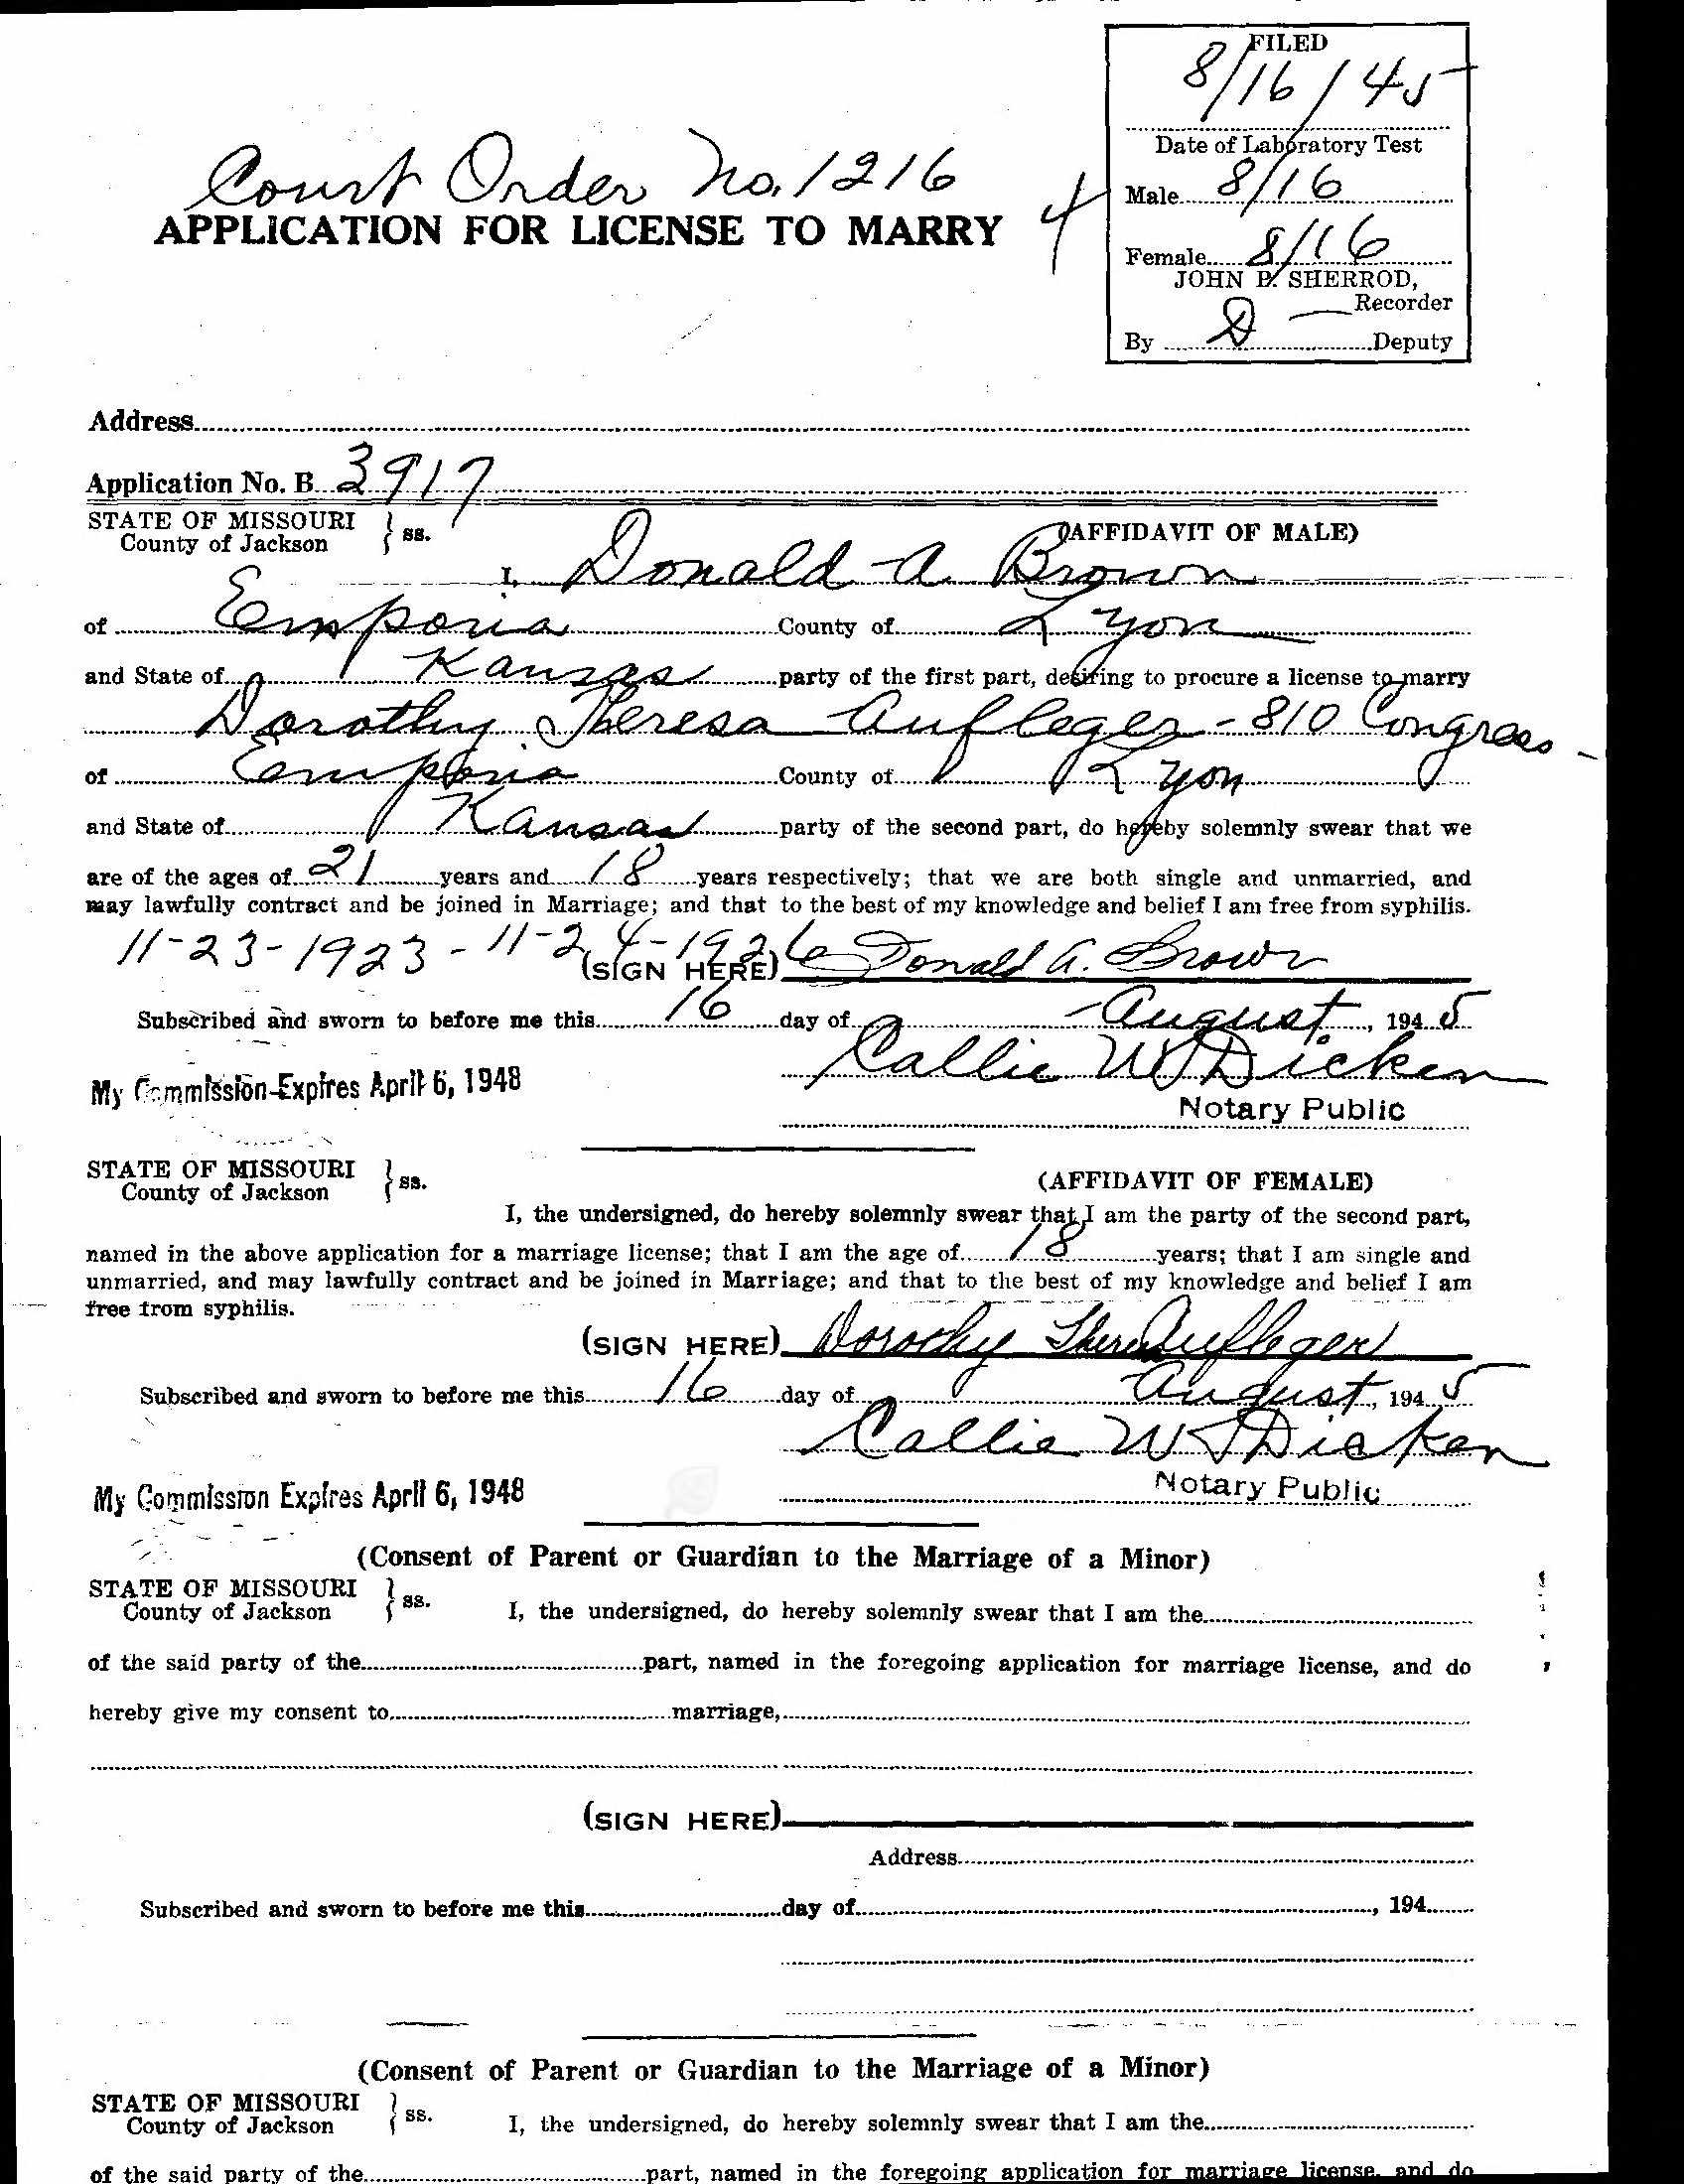 FILED
8/16/45
Date of Laboratory Test
Court Order No. 1216
Male 8/16
APPLICATION FOR LICENSE TO MARRY 4
Female 8/16
JOHN P. SHERROD,
Recorder
By D Deputy
Address
Application No. B 3917
STATE OF MISSOURI
County of Jackson } ss. (AFFIDAVIT OF MALE)
I, Donald A. Brown
of Emporia County of Lyon
and State of Kansas party of the first part, desiring to procure a license to marry
Dorothy Theresa Aufleger - 810 Congress -
of Emporia County of Lyon
and State of Kansas party of the second part, do hereby solemnly swear that we
are of the ages of 21 years and 18 years respectively; that we are both single and unmarried, and
may lawfully contract and be joined in Marriage; and that to the best of my knowledge and belief I am free from syphilis.
11-23-1923 - 11-24-1926 (SIGN HERE) Donald A. Brown
Subscribed and sworn to before me this 16 day of August, 1945
Callie W Dicken
My Commission Expires April 6, 1948
Notary Public
STATE OF MISSOURI
County of Jackson } ss. (AFFIDAVIT OF FEMALE)
I, the undersigned, do hereby solemnly swear that I am the party of the second part,
named in the above application for a marriage license; that I am the age of 18 years; that I am single and
unmarried, and may lawfully contract and be joined in Marriage; and that to the best of my knowledge and belief I am
free from syphilis.
(SIGN HERE) Dorothy Theresa Aufleger
Subscribed and sworn to before me this 16 day of August, 1945
Callie W Dicken
My Commission Expires April 6, 1948 Notary Public
(Consent of Parent or Guardian to the Marriage of a Minor)
STATE OF MISSOURI
County of Jackson } ss. I, the undersigned, do hereby solemnly swear that I am the
of the said party of the part, named in the foregoing application for marriage license, and do
hereby give my consent to marriage,
(SIGN HERE)
Address
Subscribed and sworn to before me this day of , 194
(Consent of Parent or Guardian to the Marriage of a Minor)
STATE OF MISSOURI
County of Jackson } ss. I, the undersigned, do hereby solemnly swear that I am the
of the said party of the part, named in the foregoing application for marriage license, and do